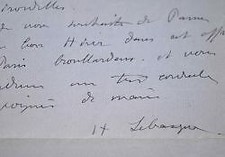 nouvelles
je vous souhaite de Passer
un bon Hiver dans cet aff
Paris brouillardeux et vous
un très cordiale
poignée de main
H Lebasque